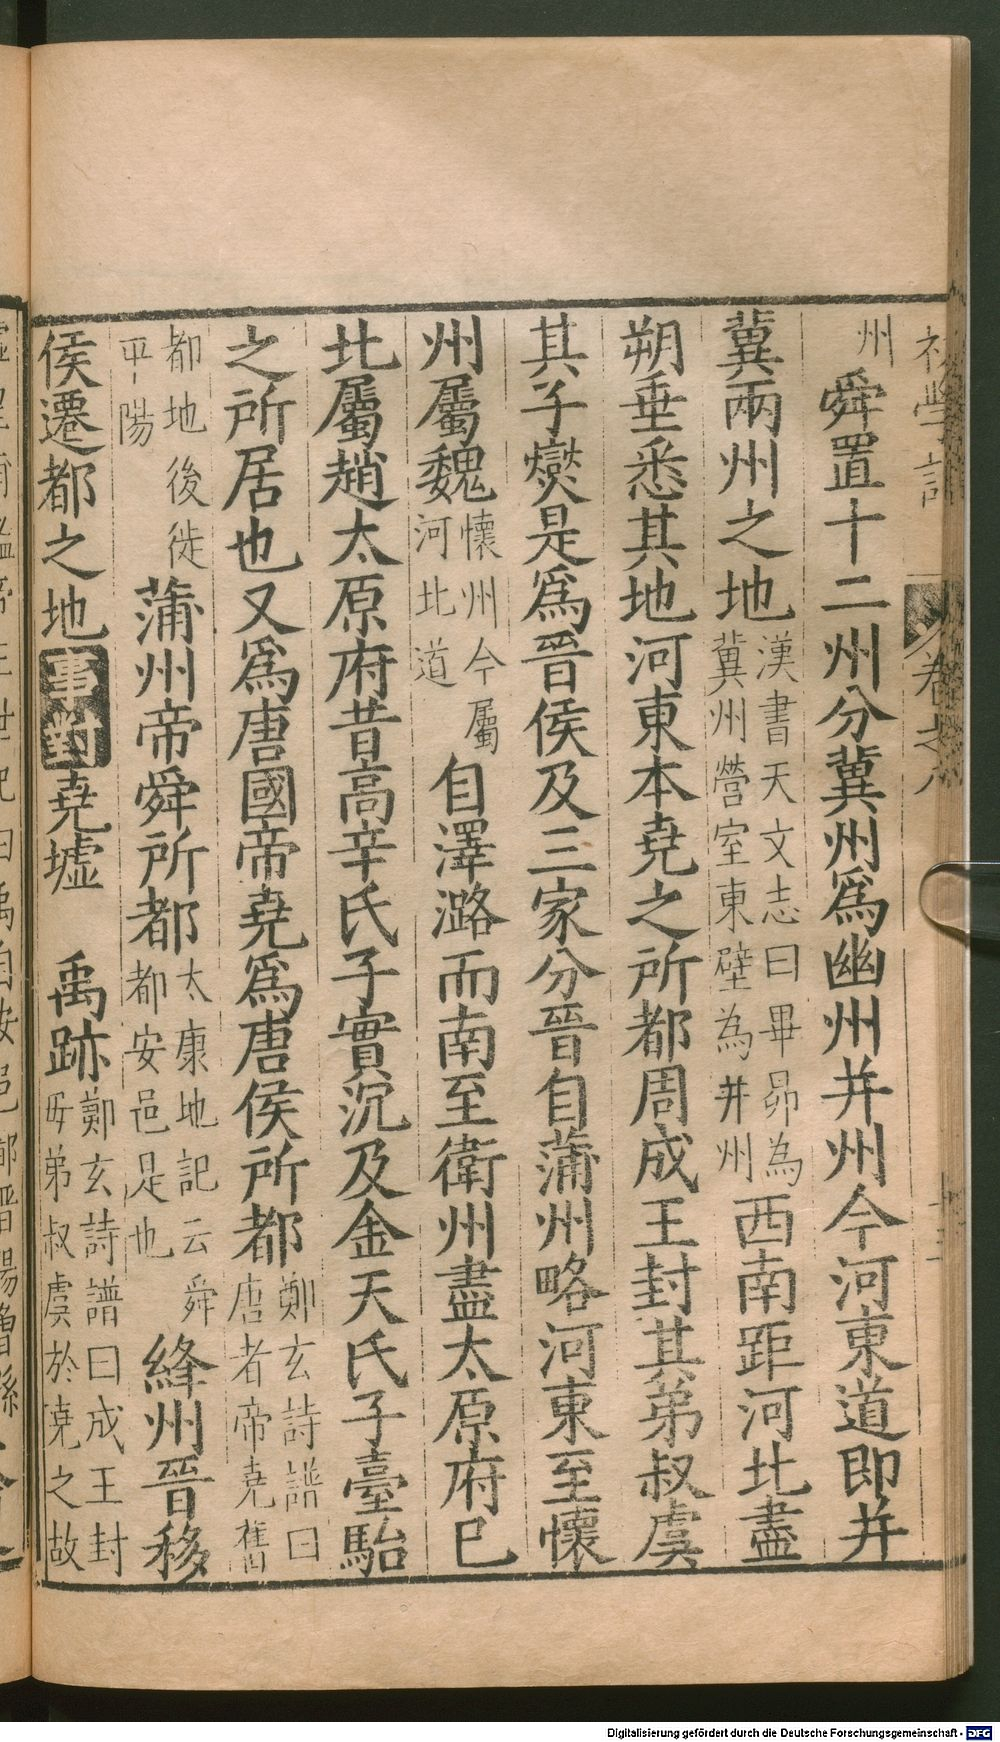 州
舜置十二州分冀州爲幽州并州今河東道即并
冀兩州之地漢書天文志曰畢昴為冀州營室東壁為并州西南距河北盡
朔垂悉其地河東本堯之所都周成王封其弟叔虞
其子爕是爲晉侯及三家分晉自蒲州略河東至懷
州屬魏懷州今屬河北道自澤潞而南至衛州盡太原府已
北屬趙太原府昔高辛氏子實沉及金天氏子臺駘
之所居也又爲唐國帝堯爲唐侯所都鄭玄詩譜曰唐者帝堯舊
都地後徙平陽蒲州帝舜所都太康地記云舜都安邑是也絳州晉移
侯遷都之地事對堯墟 禹跡鄭玄詩譜曰成王封母弟叔虞於堯之故
卷之八
Digitalisierung gefördert durch die Deutsche Forschungsgemeinschaft - DFG